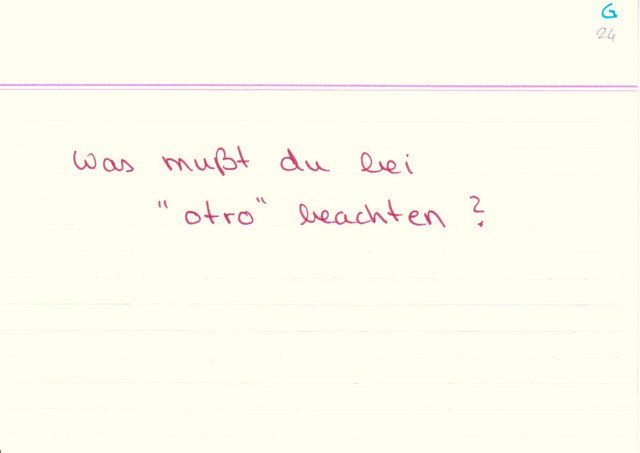 G
24
Was mußt du bei
"otro" beachten?